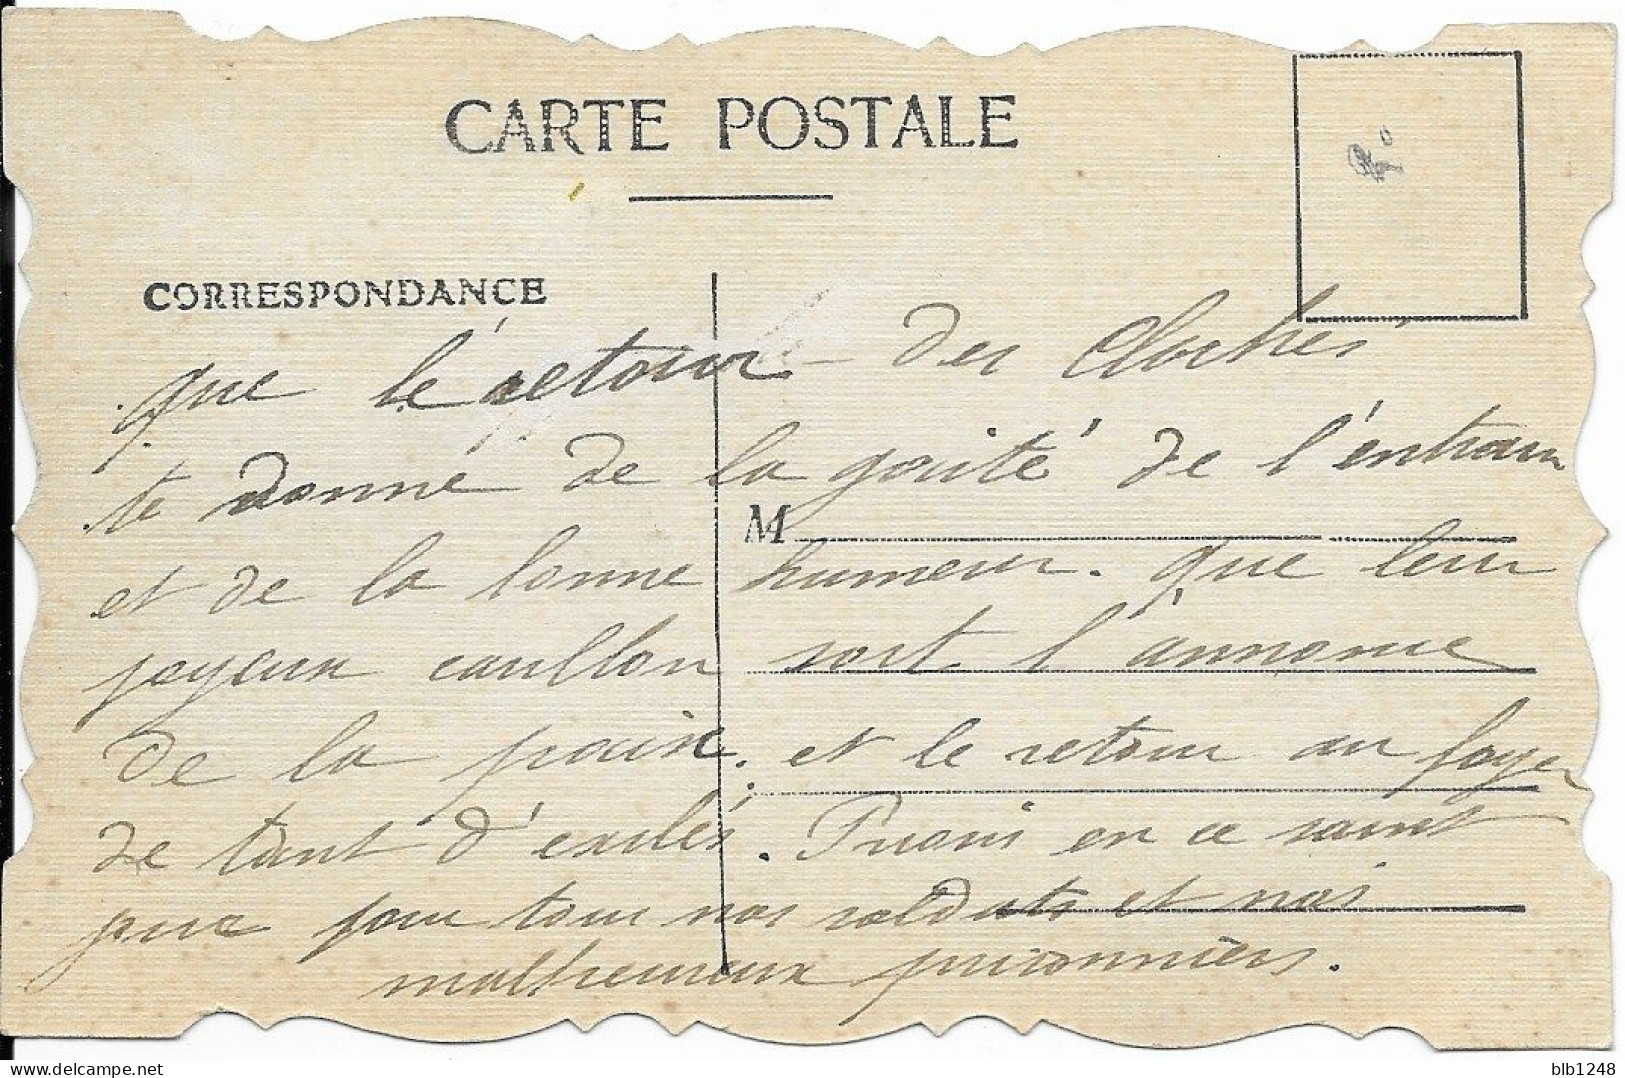 CARTE POSTALE
CORRESPONDANCE
que le retour des Cloches
te donné de la gaité de l'entrain
M
et de la bonne humeur. que leur
joyeux carillon soit l'annonce
de la paix. et le retour au foyer
de tant d'exilés. Prions en ce saint
jour pour tous nos soldats et nos
malheureux prisonniers.
delcampe.net
blb1248